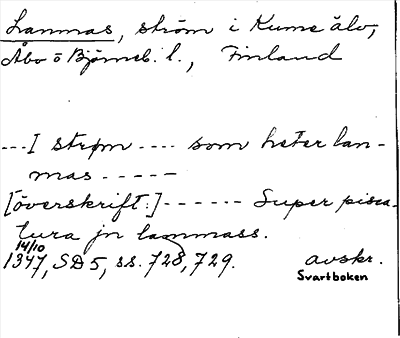 Lanmas, ström i Kumo älv,
Åbo o Björneb. l., Finland
---I strøm ---- som heter lan-
mas -----
[överskrift:] ------ Super pisca-
tura jn lanmass.
14/10
1347, SD 5, ss. 728, 729. avskr.
Svartboken